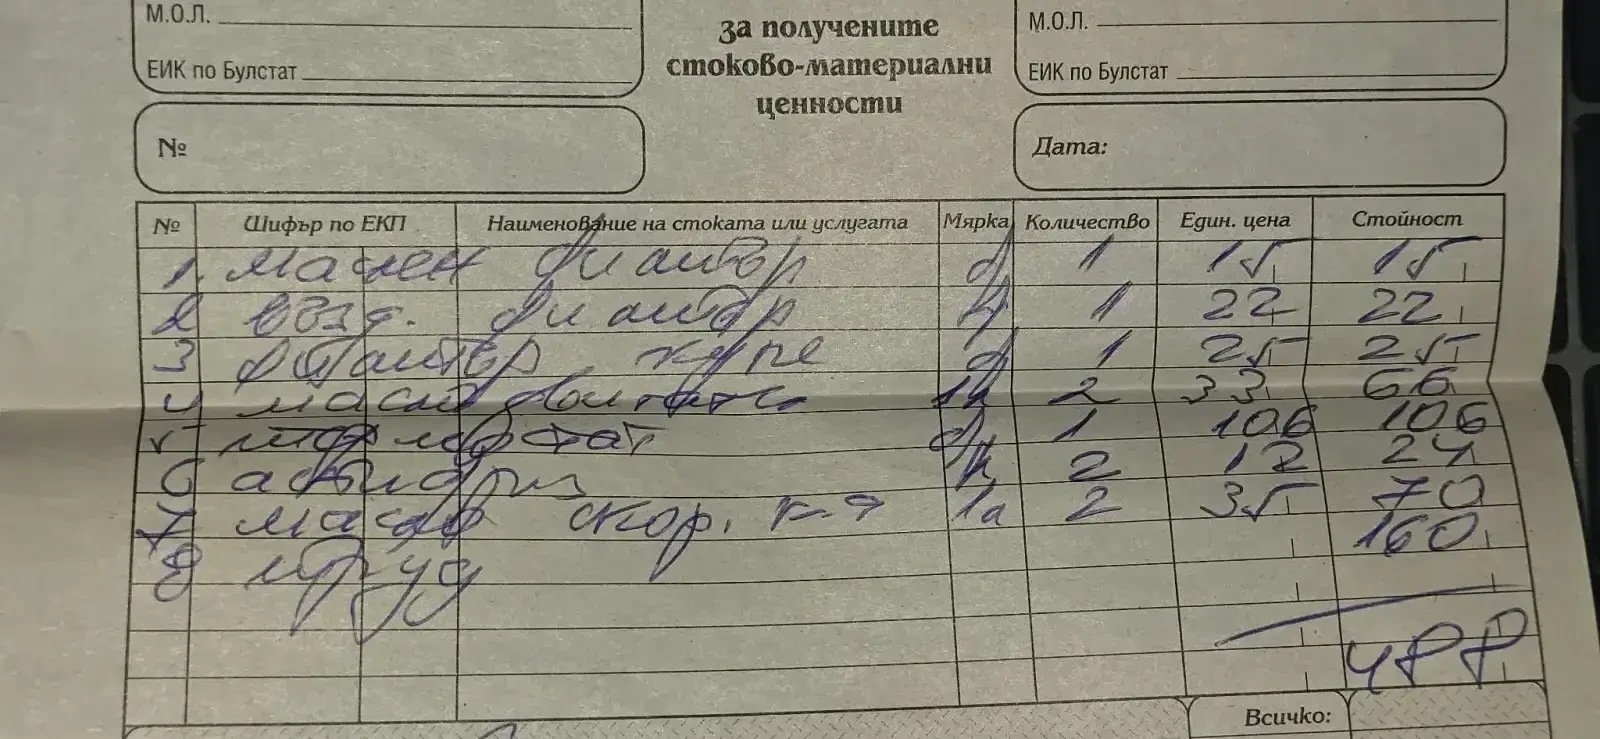 М.О.Л.
за получените
М.О.Л.
ЕИК по Булстат
стоково-материални
ЕИК по Булстат
ценности
№
Дата:
№ Шифър по ЕКП Наименование на стоката или услугата Мярка Количество Един. цена Стойност
1. маслен филтър 1 15 15
2 възд. филтър 1 22 22
3 филтър купе 1 25 25
4 масло 2 33 66
5 термостат 1 106 106
6 антифриз 2 12 24
7 масло скор. к-я 2 35 70
8 труд 160
488
Всичко: